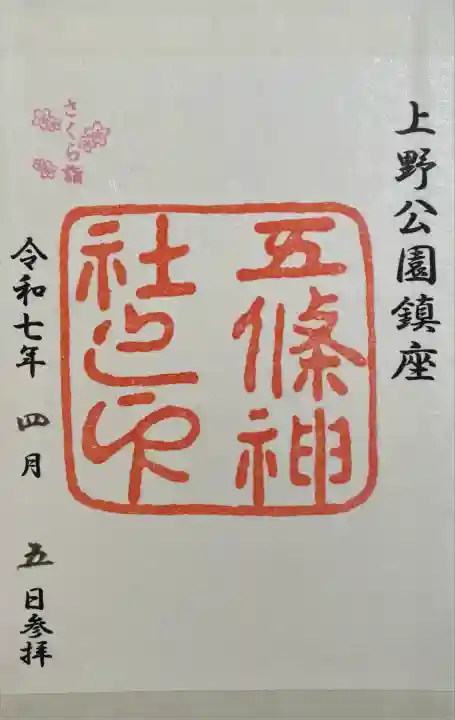 上野公園鎮座
五條神
社之印
さくら詣
令和七年 四月 五日参拝